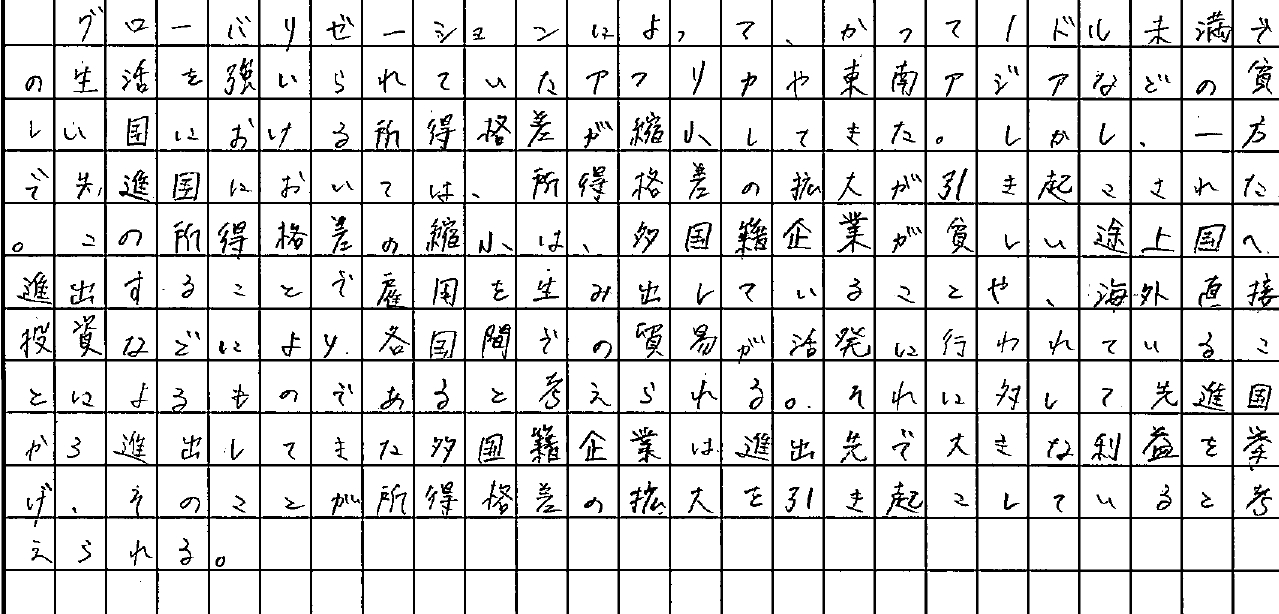 グローバリゼーションによって、かつて1ドル未満で
の生活を強いられていたアフリカや東南アジアなどの貧
しい国における所得格差が縮小してきた。しかし、一方
で先進国においては、所得格差の拡大が引き起こされた
。この所得格差の縮小は、多国籍企業が貧しい途上国へ
進出することで雇用を生み出していることや、海外直接
投資などにより各国間での貿易が活発に行われているこ
とによるものであると考えられる。それに対して先進国
から進出してきた多国籍企業は進出先で大きな利益を挙
げ、そのことが所得格差の拡大を引き起こしていると考
えられる。